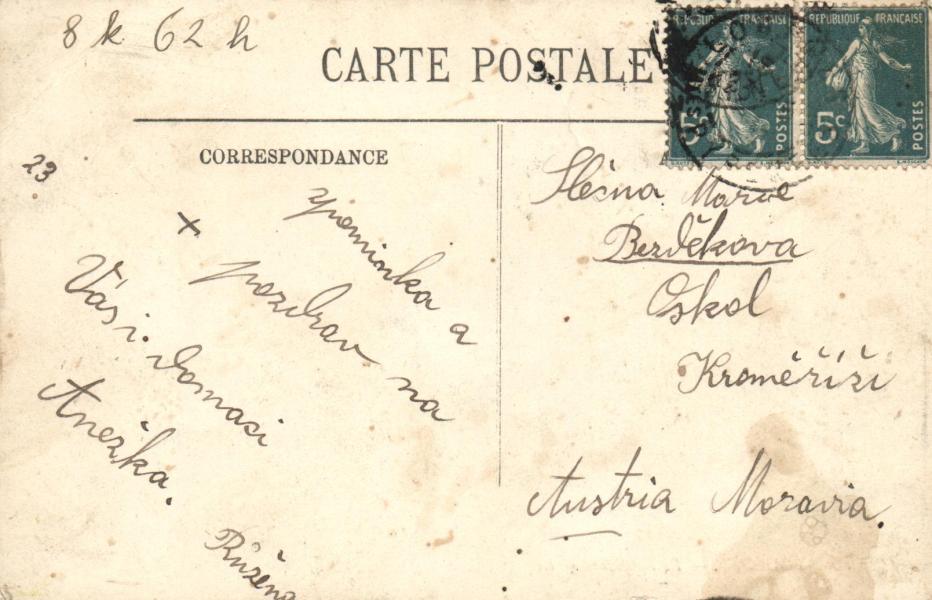 8 k 62 h
CARTE POSTALE
REPUBLIQUE FRANÇAISE
5c
POSTES
REPUBLIQUE FRANÇAISE
5c
POSTES
CORRESPONDANCE
23
x
Vpominka a
pozdrav na
Vás i domaci
Anežka.
Růžena
Slečna Marie
Bezděkova
Oskol
Kroměříži
Austria Moravia.